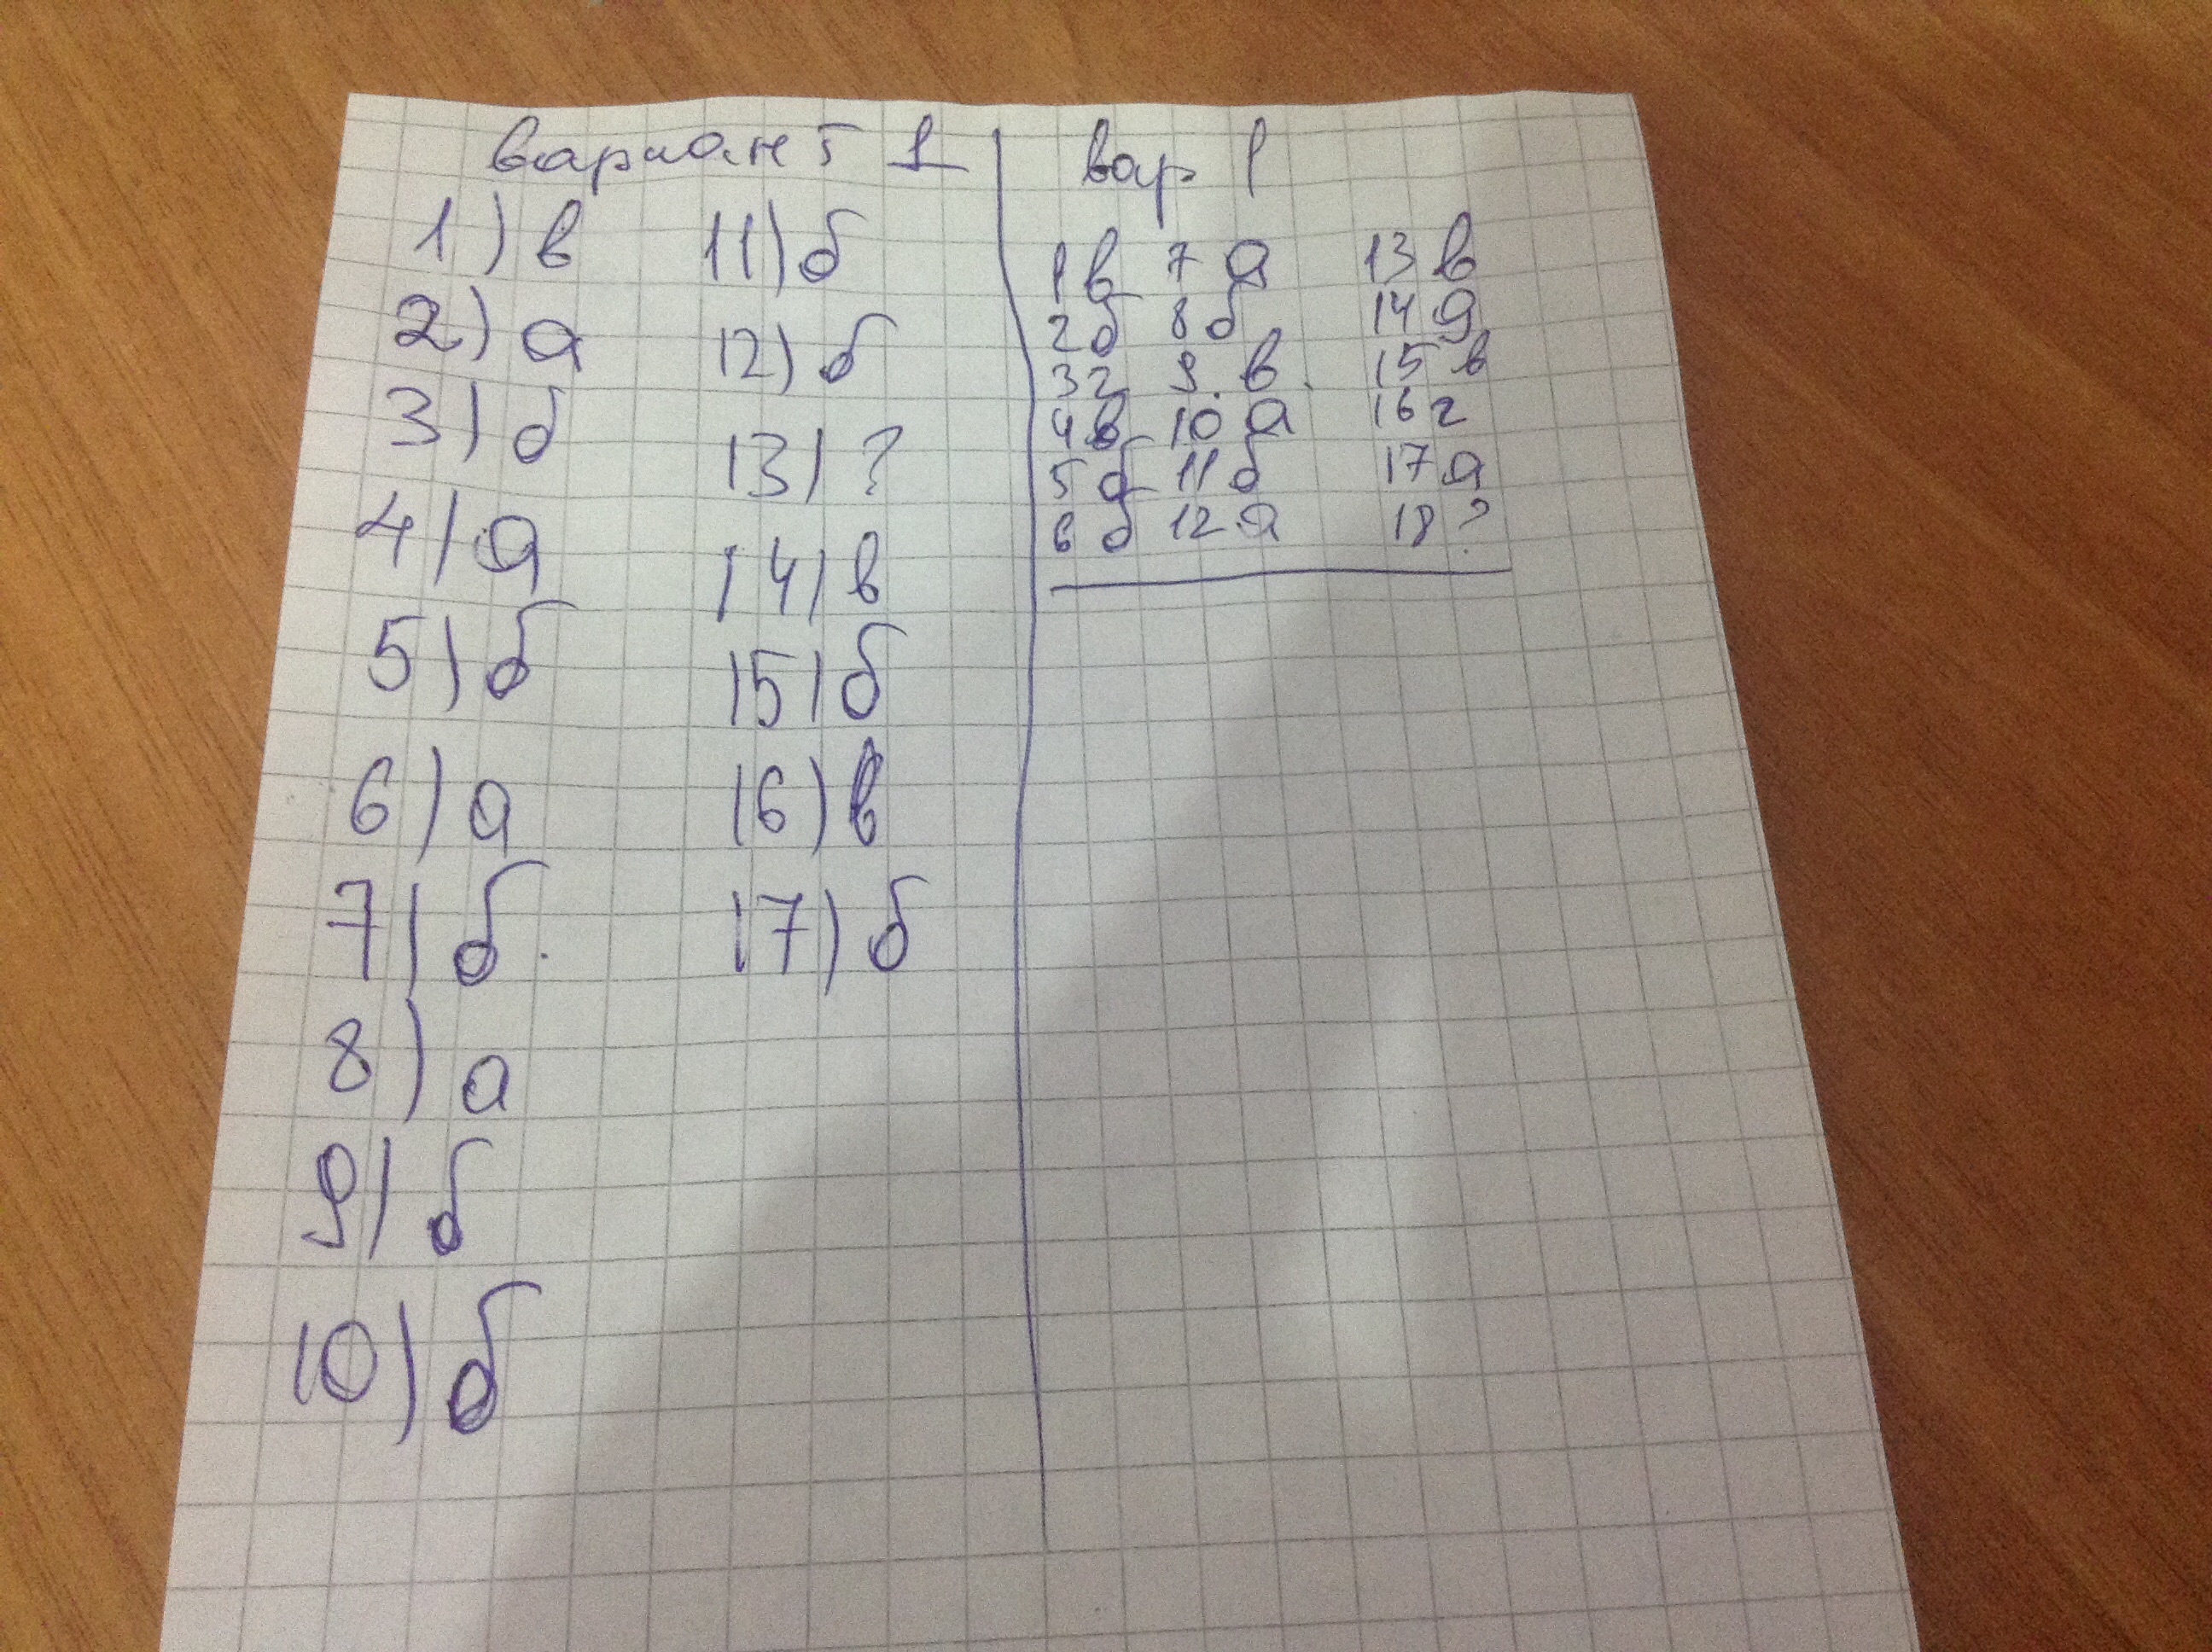 вариант 1
1) в 11) б
2) а 12) б
3) б 13) ?
4) а 14) в
5) б 15) б
6) а 16) в
7) б. 17) б
8) а
9) б
10) б
вар 1
1 в 7 а 13 в
2 б 8 б 14 а
3 г 9. в. 15 в
4 в 10 а 16 г
5 б 11 б 17 а
6 б 12 а 18 ?